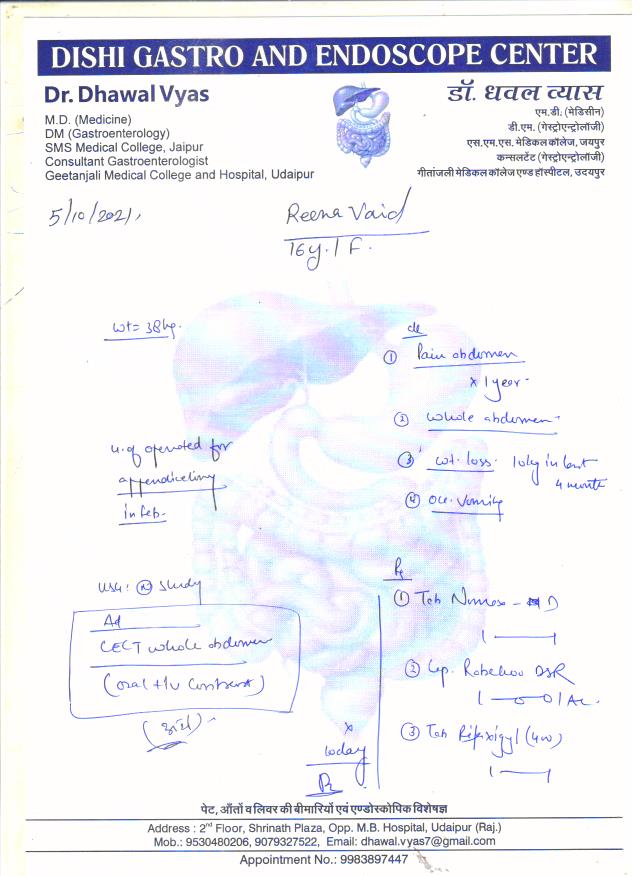 DISHI GASTRO AND ENDOSCOPE CENTER
Dr. Dhawal Vyas
M.D. (Medicine)
DM (Gastroenterology)
SMS Medical College, Jaipur
Consultant Gastroenterologist
Geetanjali Medical College and Hospital, Udaipur
डॉ. धवल व्यास
एम.डी. (मेडिसीन)
डी.एम. (गेस्ट्रोएन्ट्रोलॉजी)
एस.एम.एस. मेडिकल कॉलेज, जयपुर
कन्सलटेंट (गेस्ट्रोएन्ट्रोलॉजी)
गीतांजली मेडिकल कॉलेज एण्ड हॉस्पीटल, उदयपुर
5/10/2021
Reena Vaid
16y. / F.
wt = 38kg.
① Pain abdomen
x 1 year
② whole abdomen
③ wt. loss. 10kg in last
4 month
④ Occ. Vomiting
operated for
in Feb.
USG: (N) study
Ad
CECT whole abdomen
(oral + IV Contrast)
Rx
① Tab
② Cap. DSR
③ Tab
x
10day
पेट, आँतों व लिवर की बीमारियों एवं एण्डोस्कोपिक विशेषज्ञ
Address : 2nd Floor, Shrinath Plaza, Opp. M.B. Hospital, Udaipur (Raj.)
Mob.: 9530480206, 9079327522, Email: dhawal.vyas7@gmail.com
Appointment No.: 9983897447